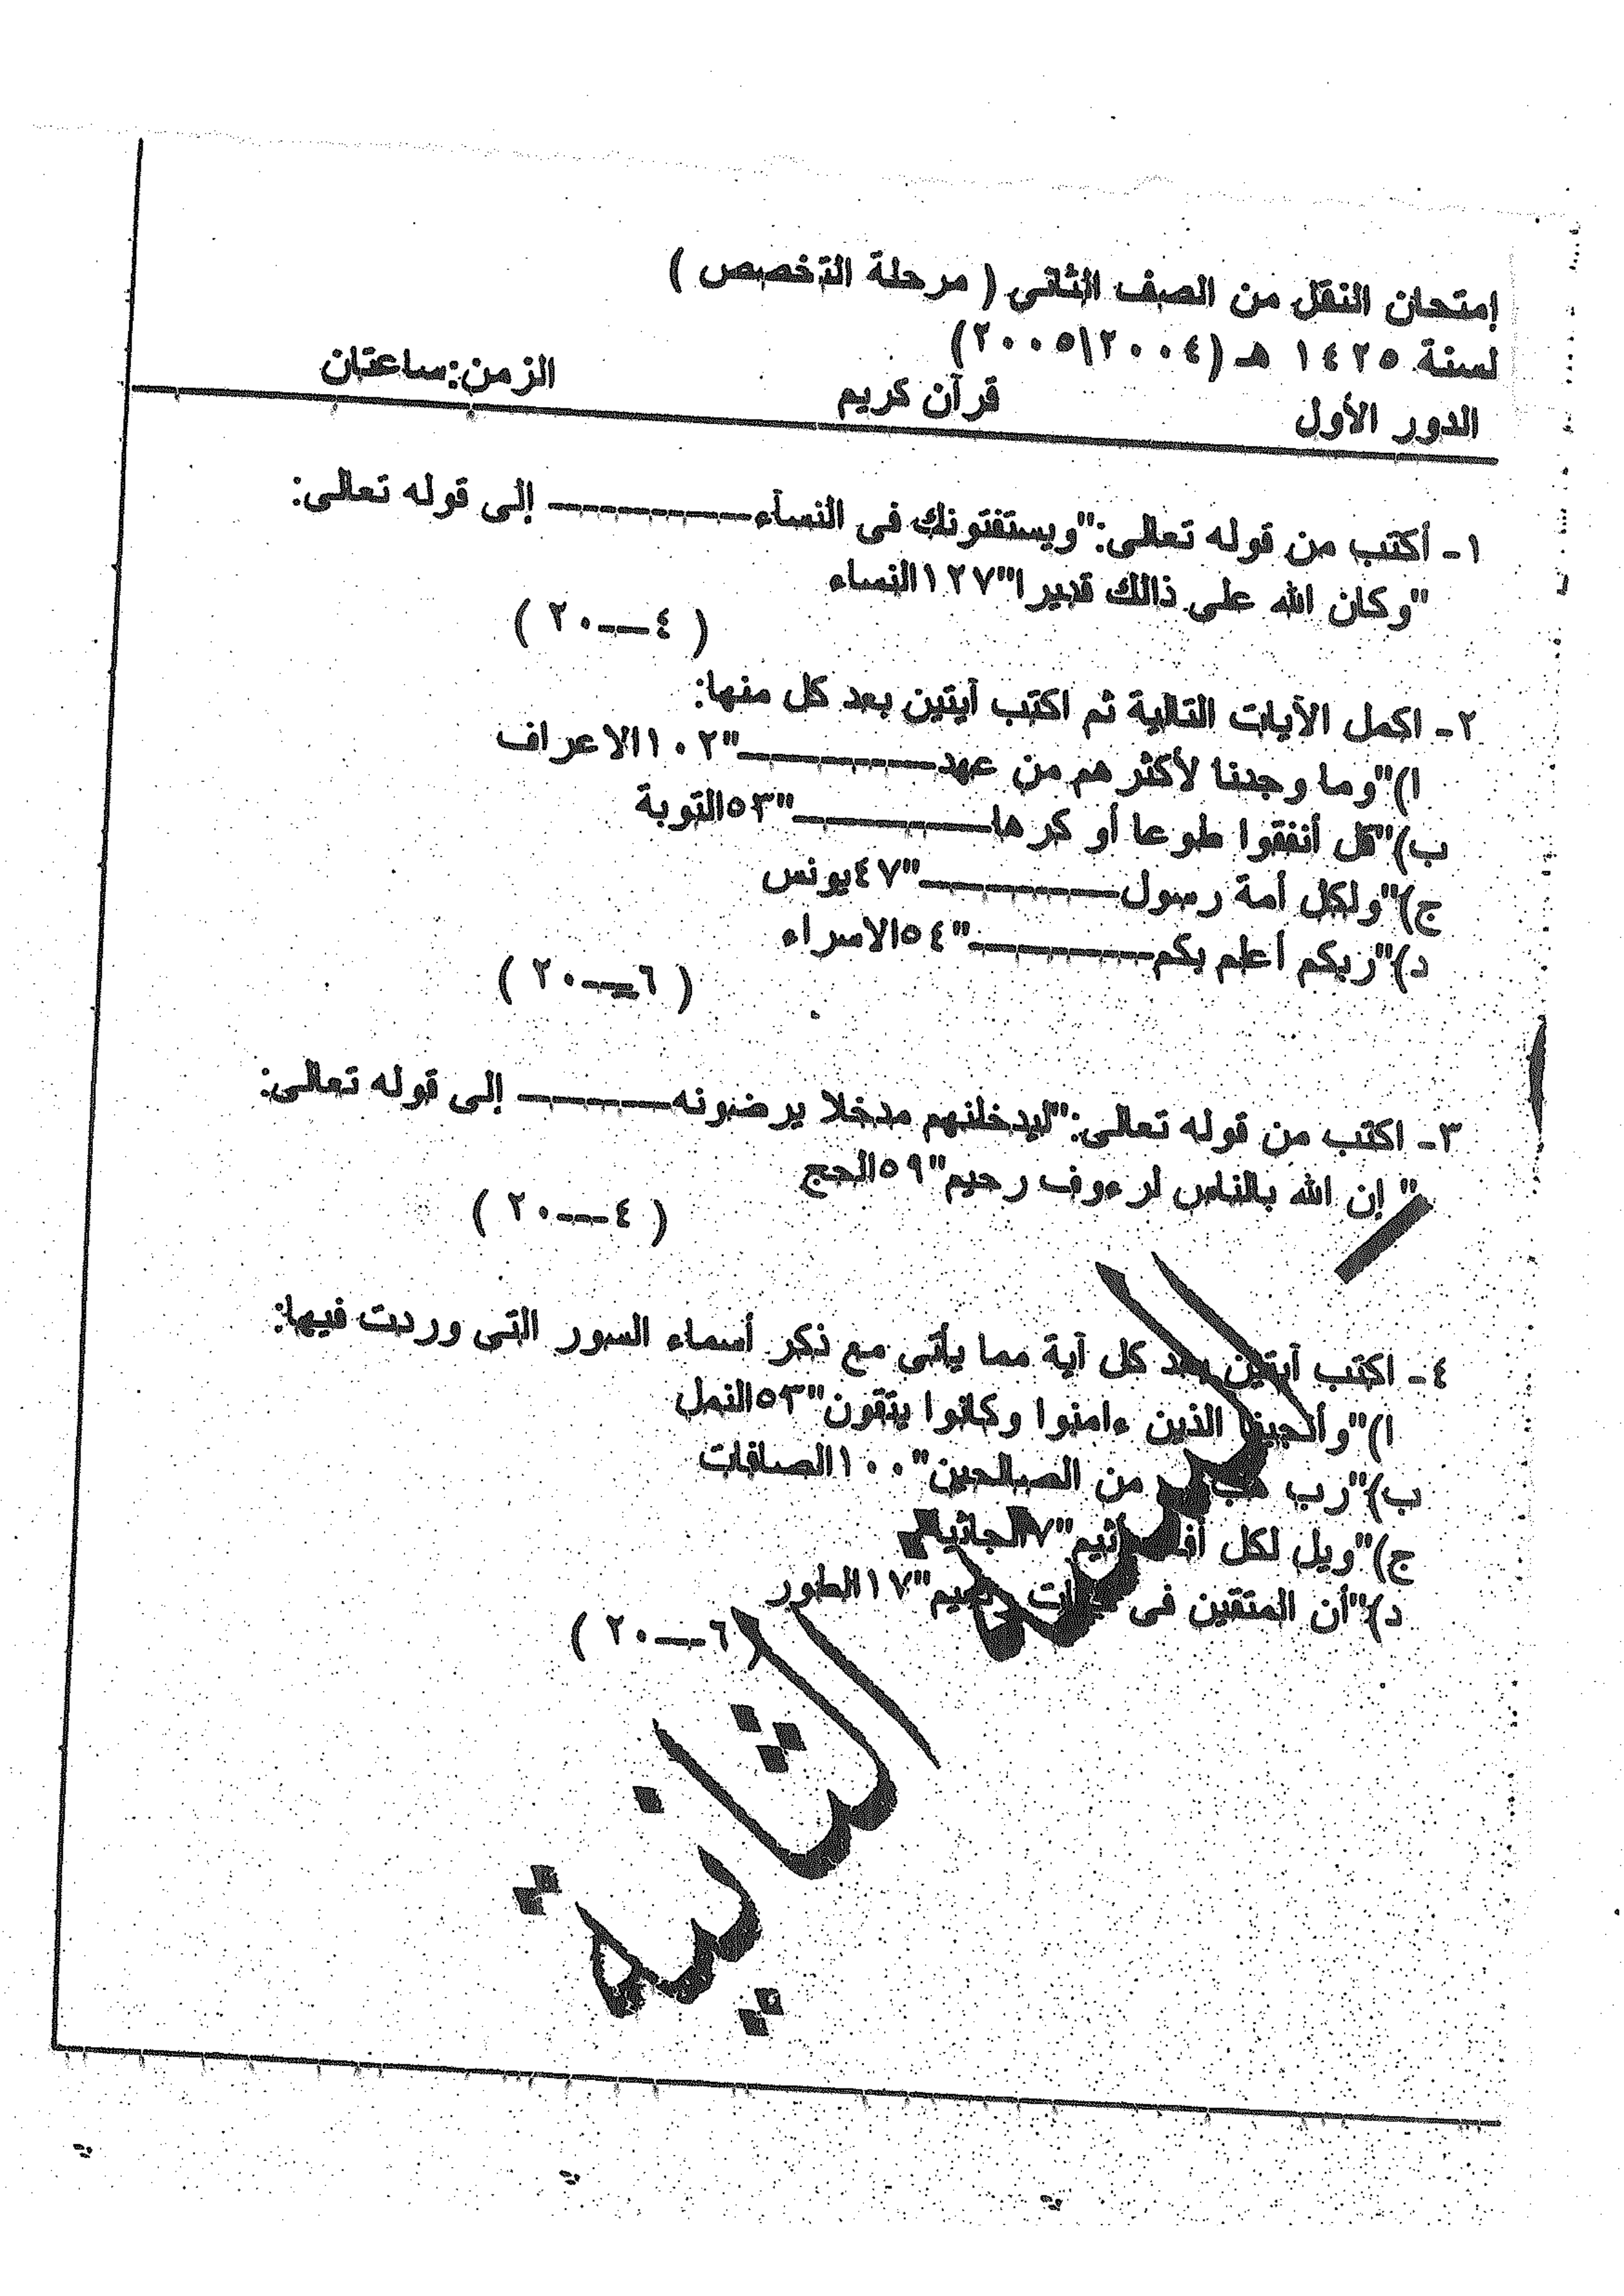 إمتحان النقل من الصف الثانى ( مرحلة التخصص )
لسنة ١٤٢٥ هـ (٢٠٠٤\٢٠٠٥)
الدور الأول قرآن كريم الزمن:ساعتان
١- أكتب من قوله تعالى:"ويستفتونك فى النسآء———— إلى قوله تعالى:
"وكان الله على ذالك قديرا"١٢٧النساء
( ٤—٢٠ )
٢- اكمل الآيات التالية ثم اكتب آيتين بعد كل منها:
ا)"وما وجدنا لأكثرهم من عهد————"١٠٢الاعراف
ب)"قل أنفقوا طوعا أو كرها————"٥٣التوبة
ج)"ولكل أمة رسول————"٤٧يونس
د)"ربكم أعلم بكم————"٥٤الاسراء
( ٦—٢٠ )
٣- اكتب من قوله تعالى:"ليدخلنهم مدخلا يرضونه——— إلى قوله تعالى:
" إن الله بالناس لرءوف رحيم"٥٩الحج
( ٤—٢٠ )
٤- اكتب آيتين بعد كل آية مما يأتى مع ذكر أسماء السور التى وردت فيها:
ا)"وأنجينا الذين ءامنوا وكانوا يتقون"٥٣النمل
ب)"رب هب من الصالحين"١٠٠الصافات
ج)"ويل لكل أفاك أثيم"٧الجاثية
د)"أن المتقين فى جنات ونعيم"١٧الطور
( ٦—٢٠ )
الثانية